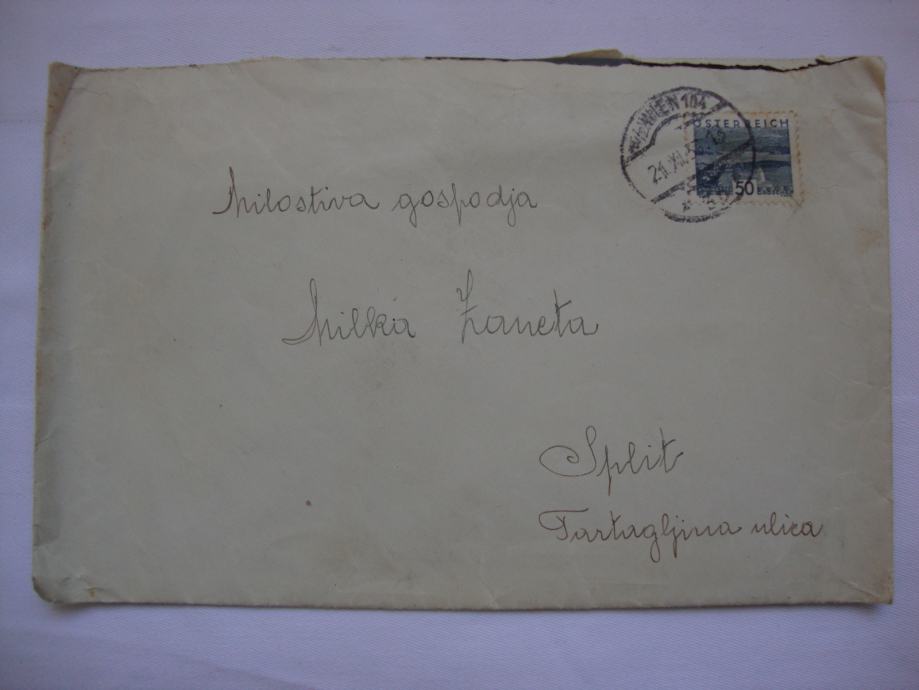 WIEN 104
21.XI.
ÖSTERREICH
50
Milostiva gospodja
Milka Žaneta
Split
Tartagljina ulica